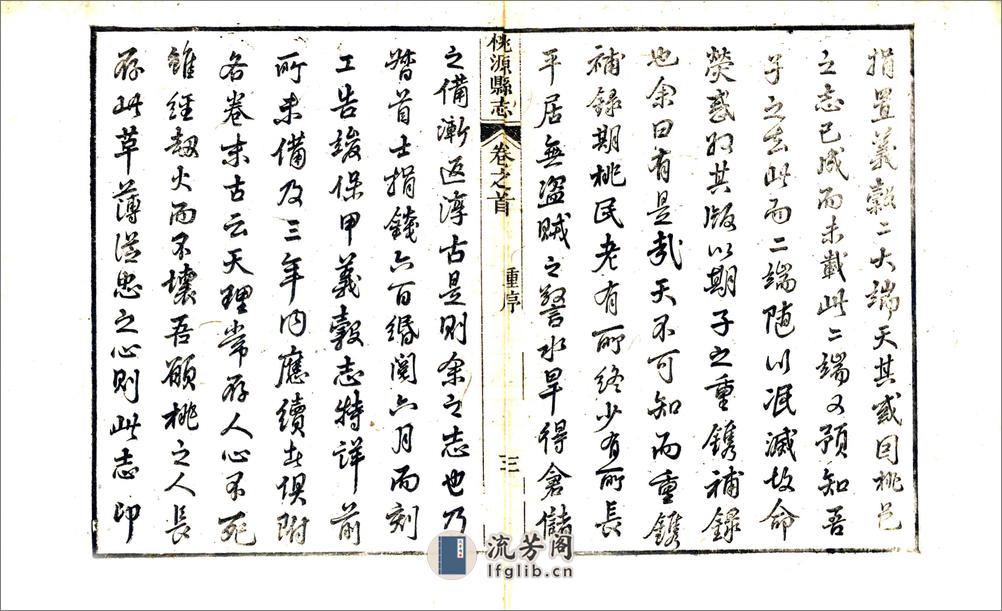 捐置義穀二大端天其或因桃邑
之志已成而未載此二端又預知吾
子之去此而二端随以泯滅故命
熒惑攺其版以期子之重鐫補録
也余曰有是哉天不可知而重鐫
補録期桃民老有所終少有所長
平居無盜賊之警水旱得倉儲
桃源縣志
卷之首
重序
三
之備漸返淳古是則余之志也乃
首士捐錢六百緡閱六月而刻
工告竣保甲義穀志特詳前
所未備及三年内應續者俱附
各卷末古云天理常存人心不死
雖經劫火而不壞吾願桃之人長
存此草薄從忠之心則此志印
流芳阁
lfglib.cn